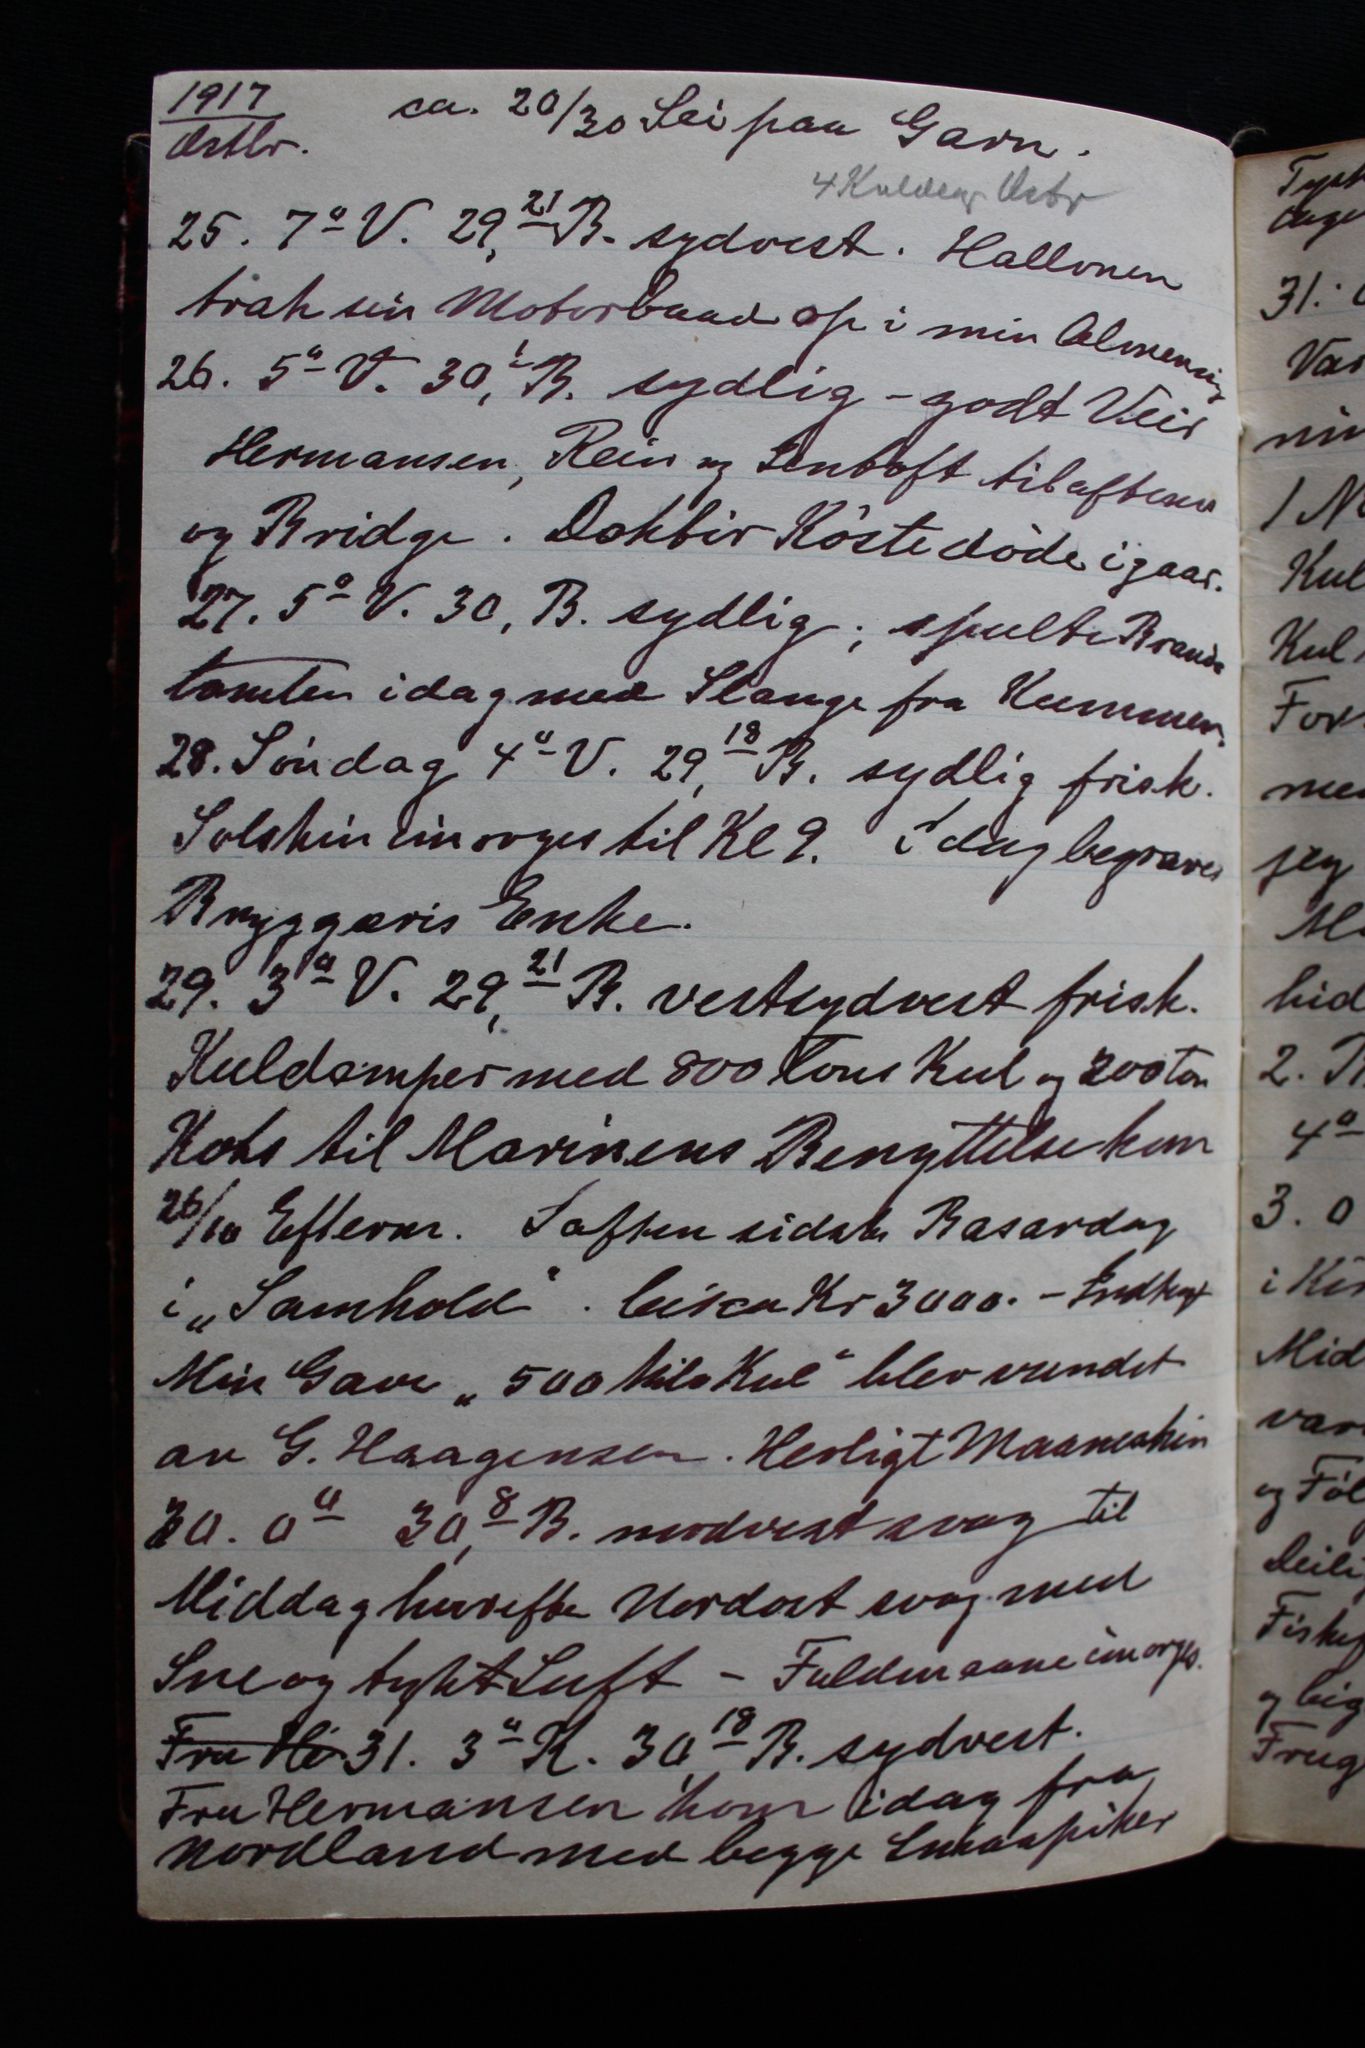 1917
Octbr.
ca. 20/30 Sei paa Garn.
4 Kuldegr Octbr
25. 7° V. 29,21 B. sydvest. Hallonen
trak sin Motorbaad op i min Almening
26. 5° V. 30,1 B. sydlig - godt Veir
Hermansen, Rein og Stenboft tilaften
og Bridge. Doktor Köste döde igaar.
27. 5° V. 30, B. sydlig; spulte Brand
tomten idag med Slange fra Kummen.
28. Söndag 4° V. 29,18 B. sydlig frisk.
Solskin imorges til Kl 9. idag begraves
Bryggæris Enke.
29. 3° V. 29,21 B. vestsydvest frisk.
Kuldamper med 800 Tons Kul og 200 Ton
Koks til Marinens Benyttelse kom
26/10 Efterm. I aften sidste Basardag
i „Samhold". circa Kr 3000.- Indkogt
Min Gave „500 kilo Kul" blev vundet
av G. Haagensen. Herligt Maaneskin
30. 0° 30,8 B. nordvest svag til
Middag herefter Nordost svag med
Sne og tykt Luft - Fuldmaane imorges.
Fru He 31. 3° K. 30,18 B. sydvest.
Fru Hermansen kom idag fra
Nordland med begge Smaapiker
Tyst
dage
31.
Var
min
1 No
Kul
Kul
For
med
jeg
hid
2.
4°
3. 0
i Kir
Mid
var
og Föl
Deili
Fisk
og
Frug